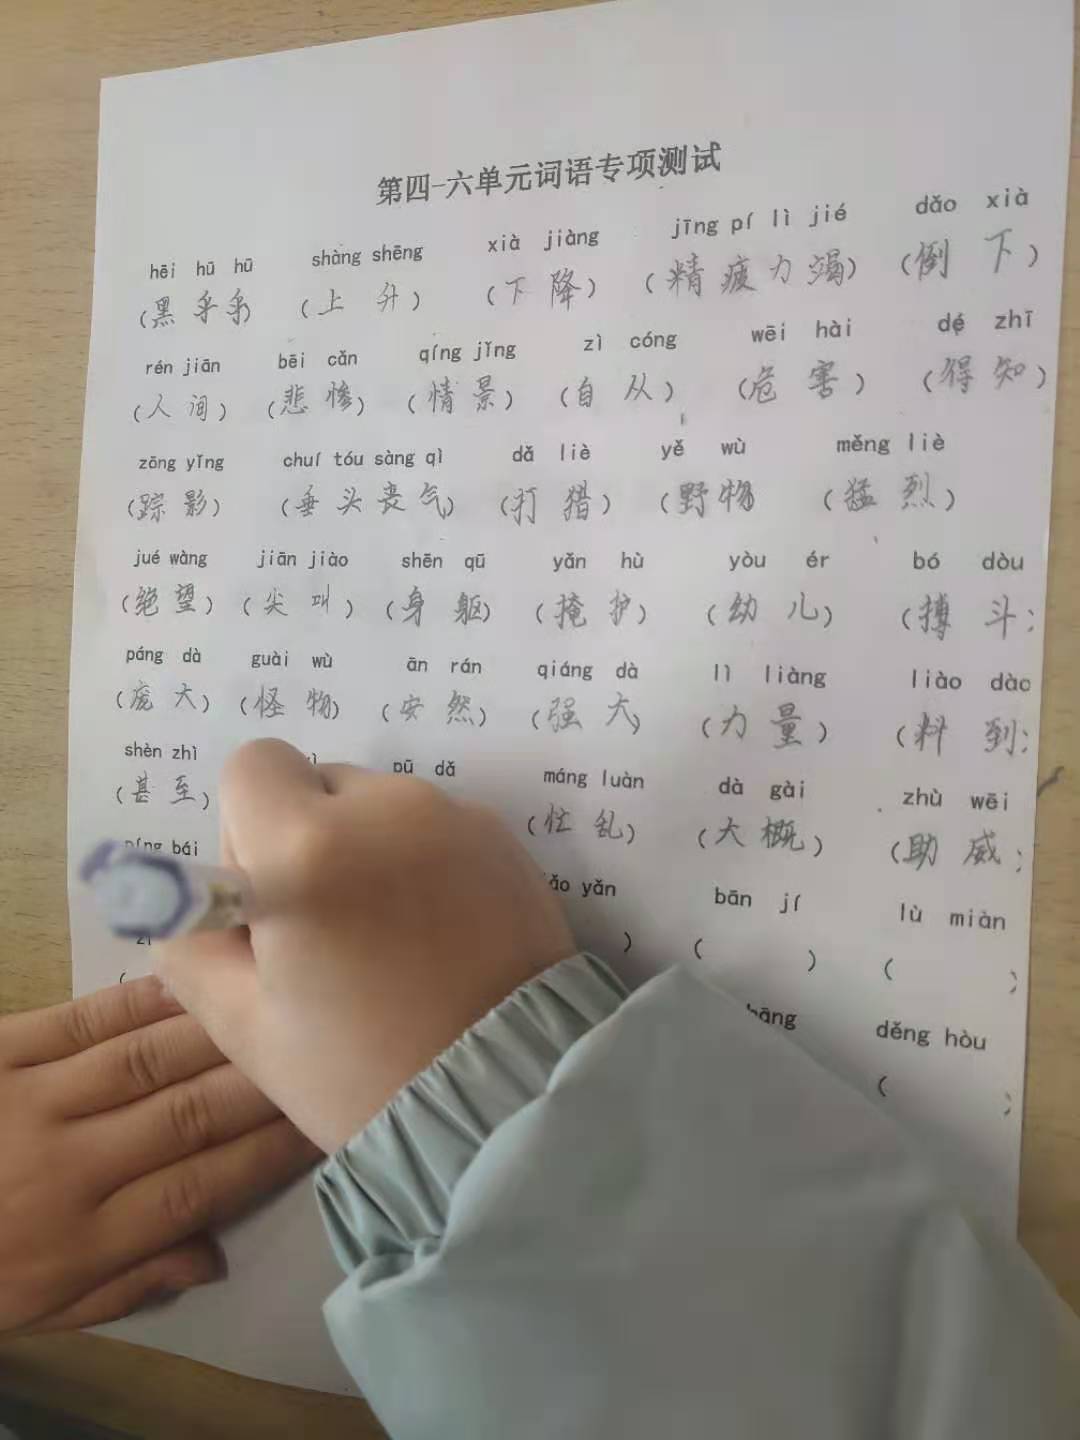 第四-六单元词语专项测试
hēi hū hū shàng shēng xià jiàng jīng pí lì jié dǎo xià
(黑乎乎) (上升) (下降) (精疲力竭) (倒下)
rén jiān bēi cǎn qíng jǐng zì cóng wēi hài dé zhī
(人间) (悲惨) (情景) (自从) (危害) (得知)
zōng yǐng chuí tóu sàng qì dǎ liè yě wù měng liè
(踪影) (垂头丧气) (打猎) (野物) (猛烈)
jué wàng jiān jiào shēn qū yǎn hù yòu ér bó dòu
(绝望) (尖叫) (身躯) (掩护) (幼儿) (搏斗)
páng dà guài wù ān rán qiáng dà lì liàng liào dào
(庞大) (怪物) (安然) (强大) (力量) (料到)
shèn zhì pū dǎ máng luàn dà gài zhù wēi
(甚至) (忙乱) (大概) (助威)
bái yǎn bān jí lù miàn
( ) ( )
děng hòu
( )